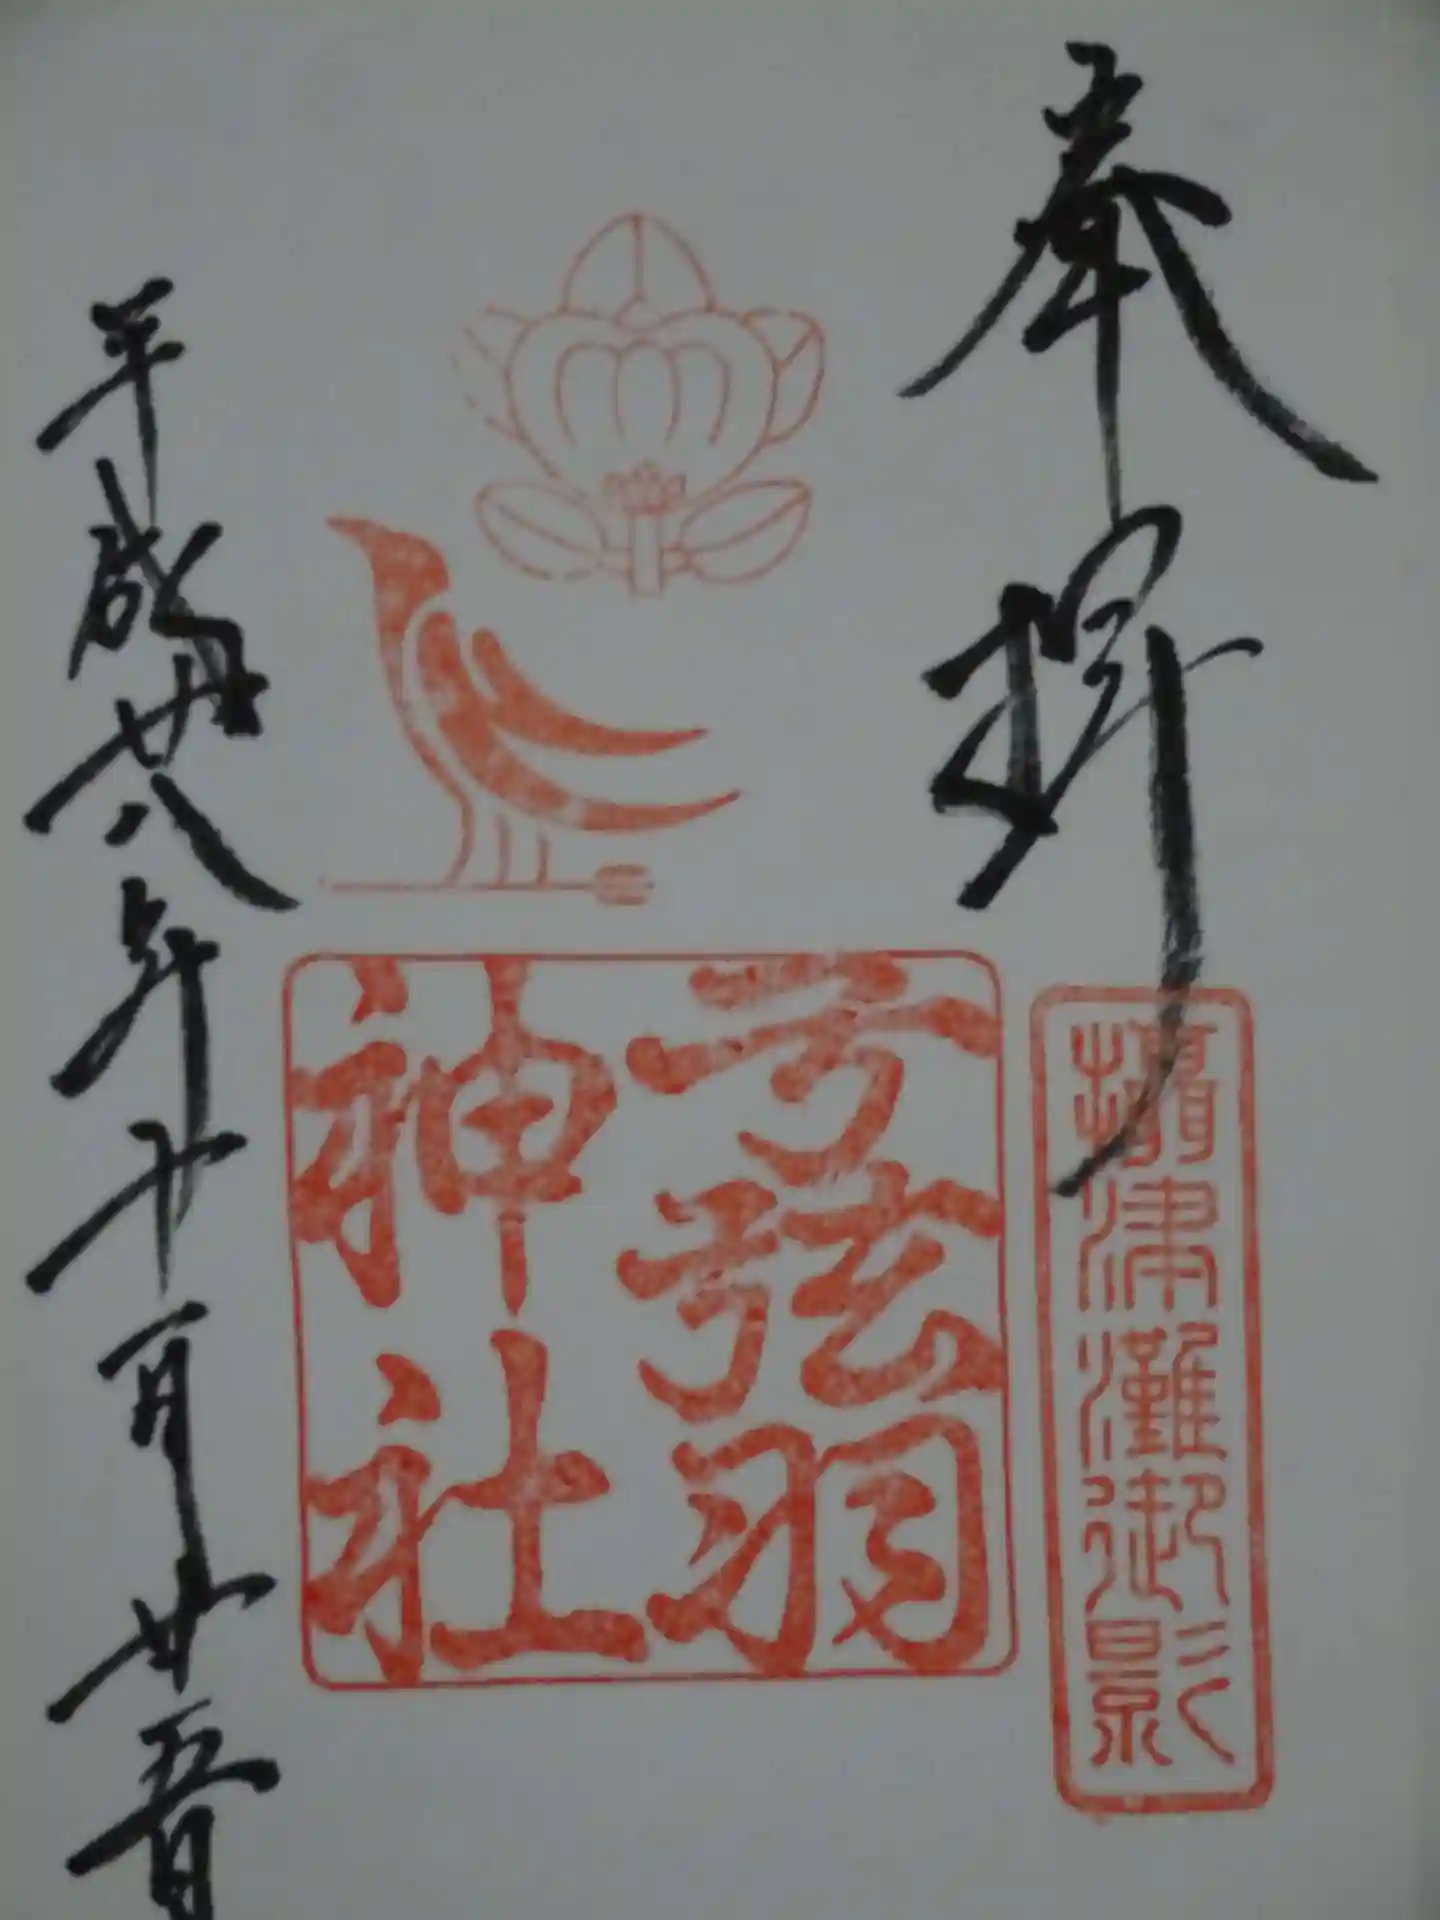 奉拝
攝津灘御影
弓弦羽
神社
平成廿八年十一月廿五日